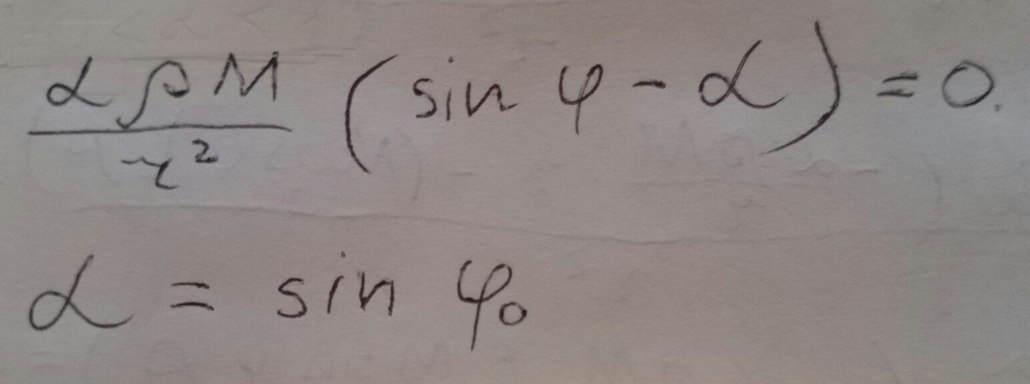 αρM/r² (sin φ - α) = 0.
α = sin φ₀